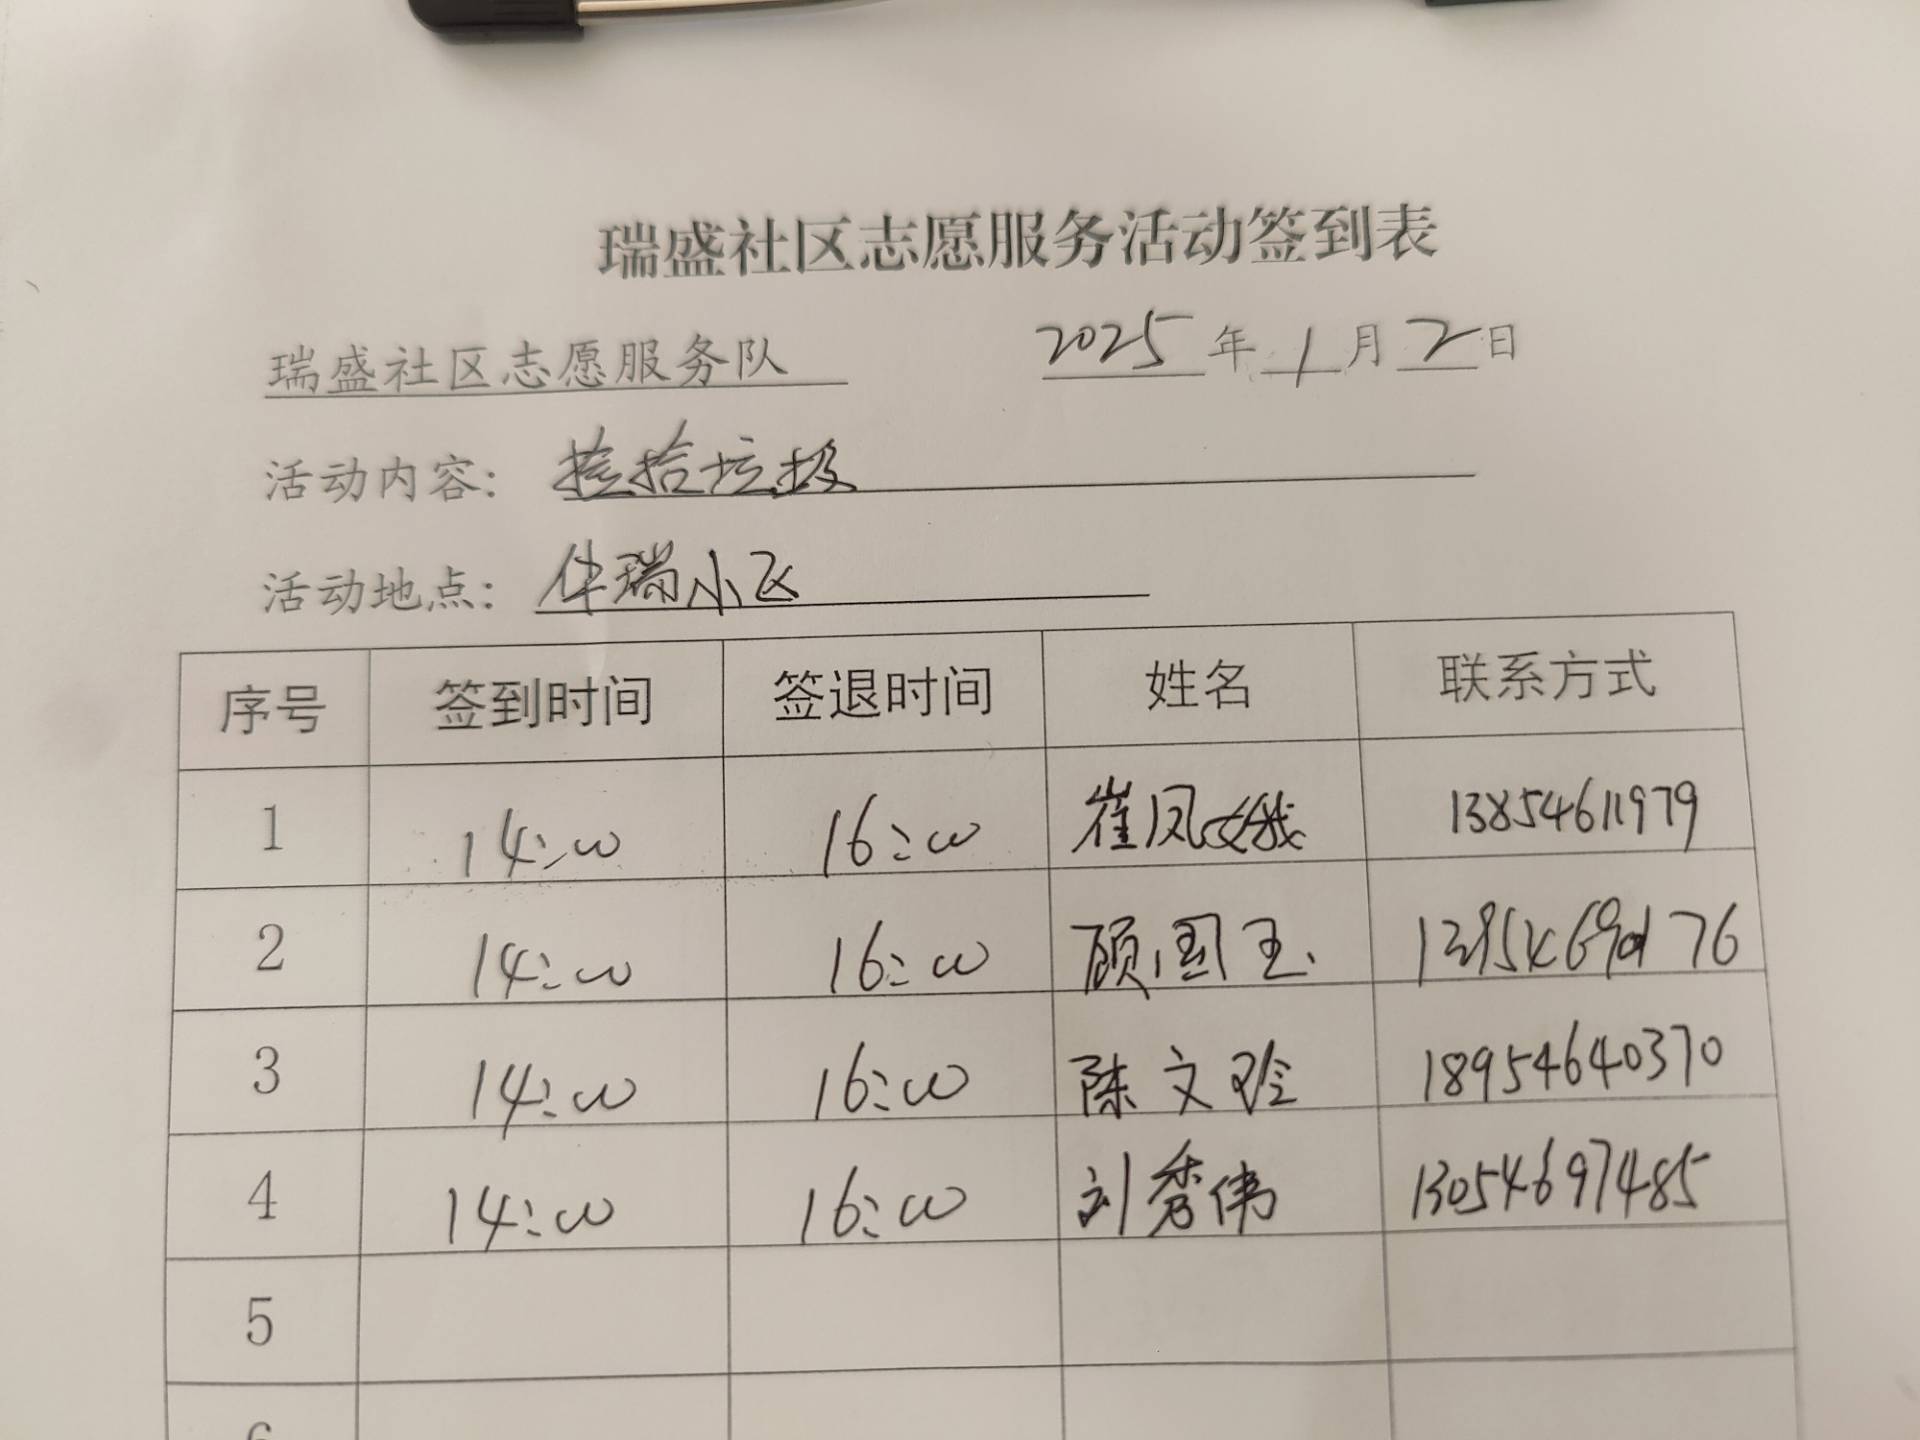 瑞盛社区志愿服务活动签到表
瑞盛社区志愿服务队 2025年1月2日
活动内容：捡拾垃圾
活动地点：华瑞小区
序号 签到时间 签退时间 姓名 联系方式
1 14:00 16:00 崔凤娥 13854611979
2 14:00 16:00 顾国玉
3 14:00 16:00 陈文玲 18954640370
4 14:00 16:00 刘秀伟 13054697485
5